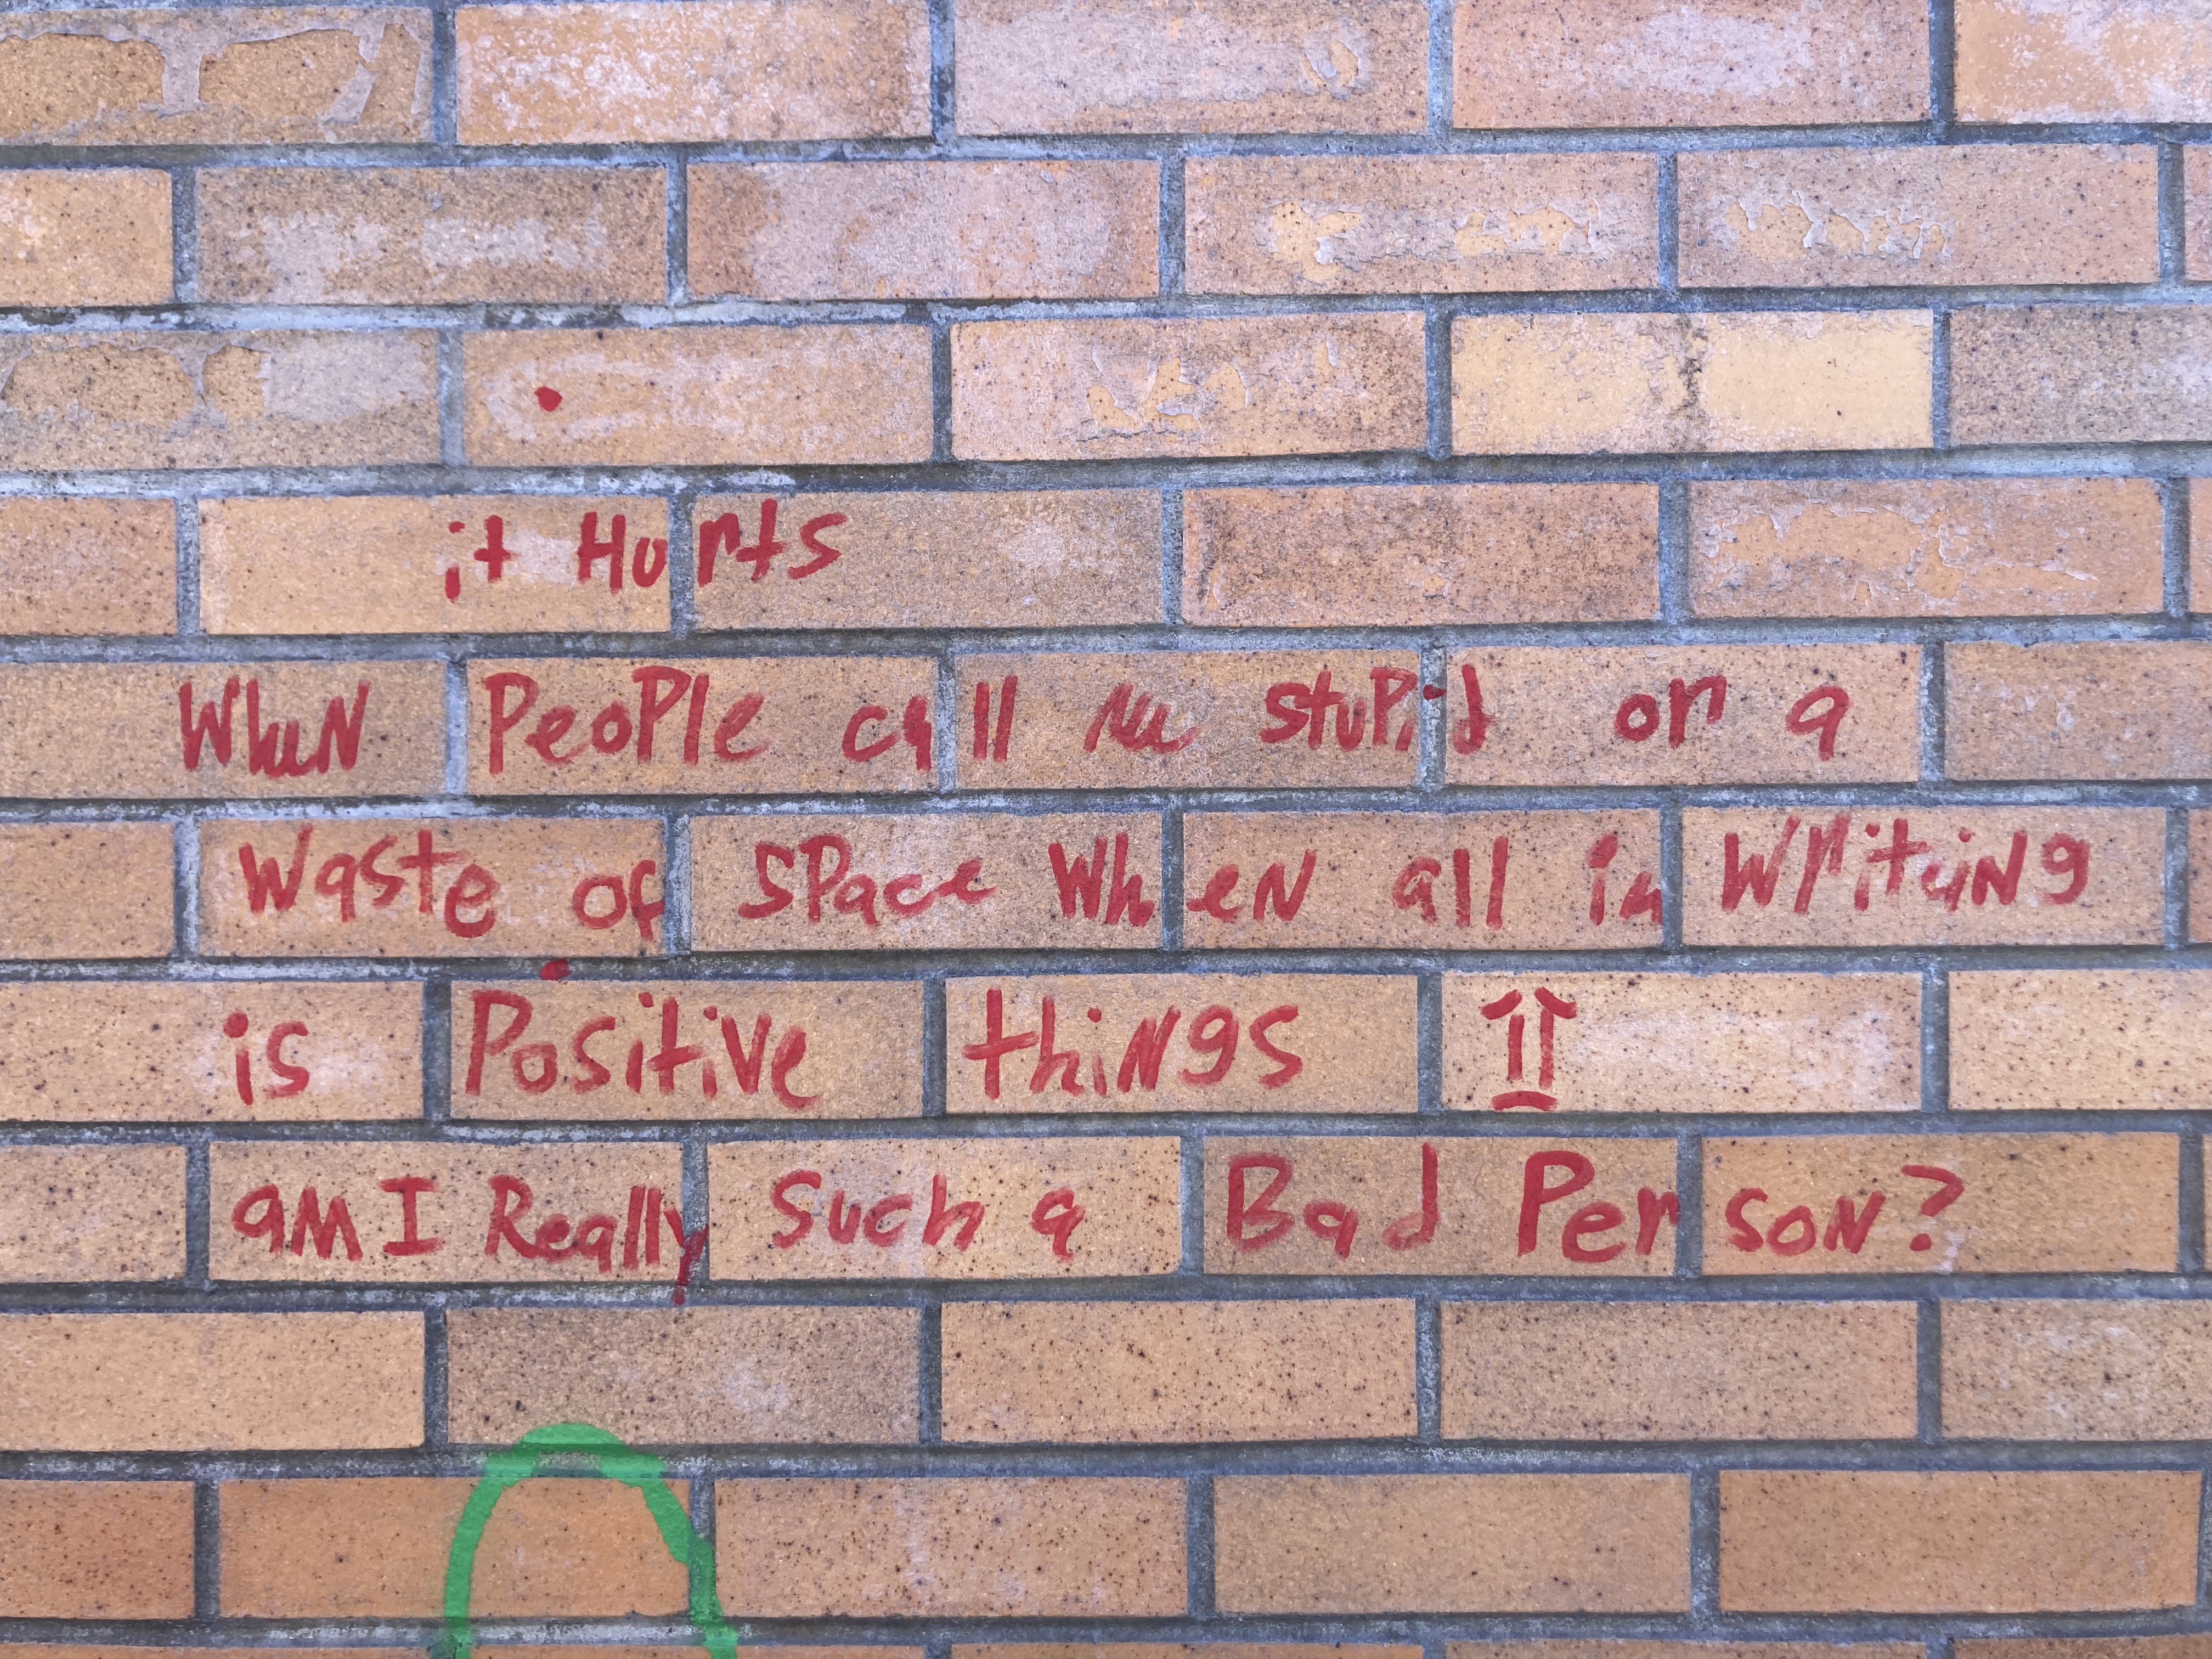 it Hurts
WheN PeoPle call me stuPid or a
Waste of sPace WheN all im WritiNg
is Positive thiNgs ⇑
aM I Really such a Bad PersoN?